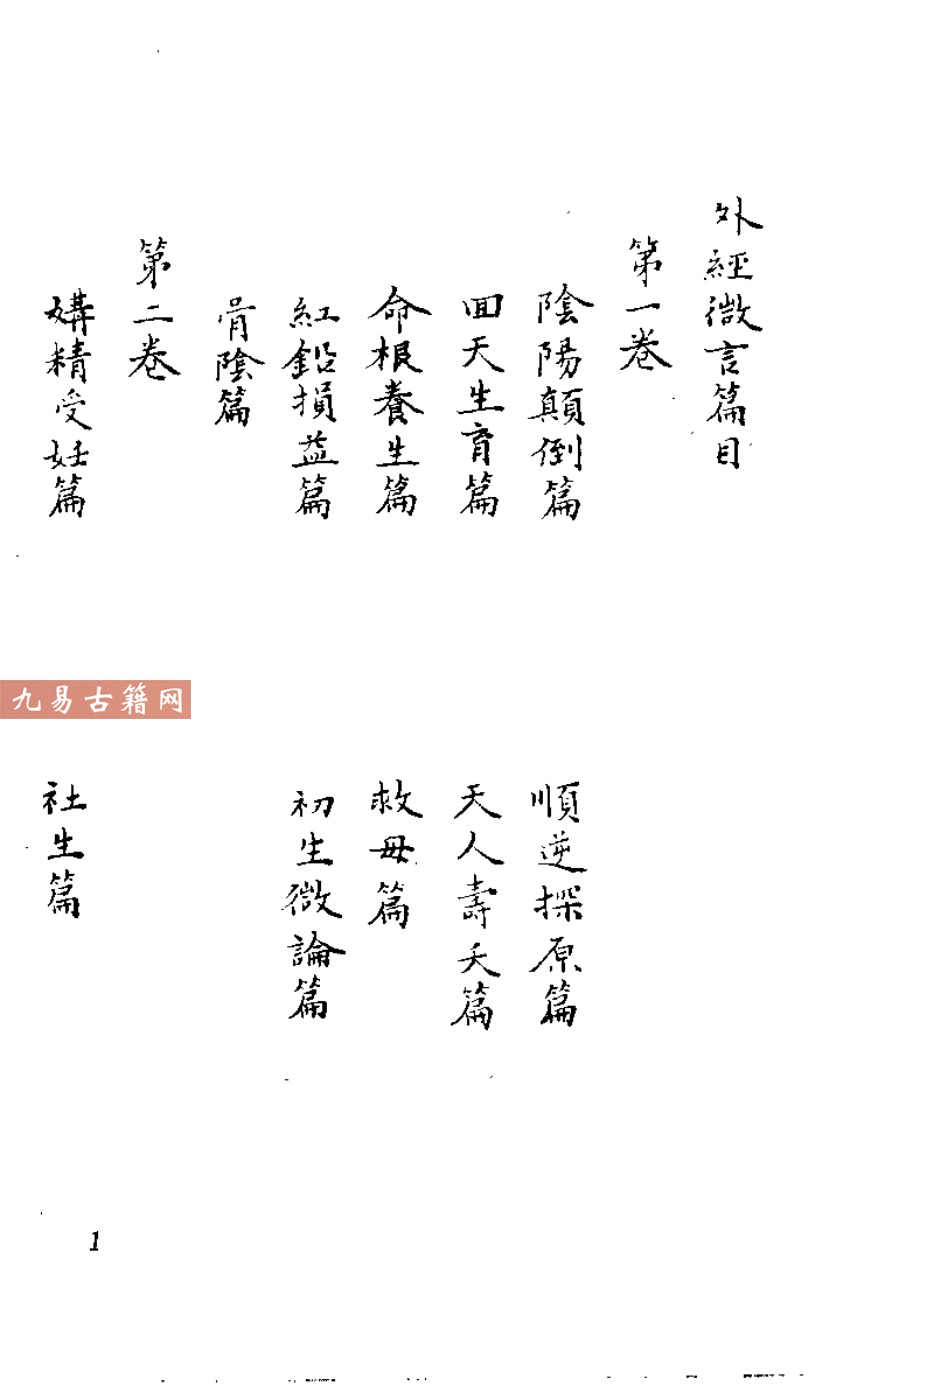 外經微言篇目
第一卷
陰陽顛倒篇
順逆探原篇
回天生育篇
天人壽夭篇
命根養生篇
救母篇
紅鉛損益篇
初生微論篇
骨陰篇
第二卷
媾精受妊篇
社生篇
九易古籍网
1